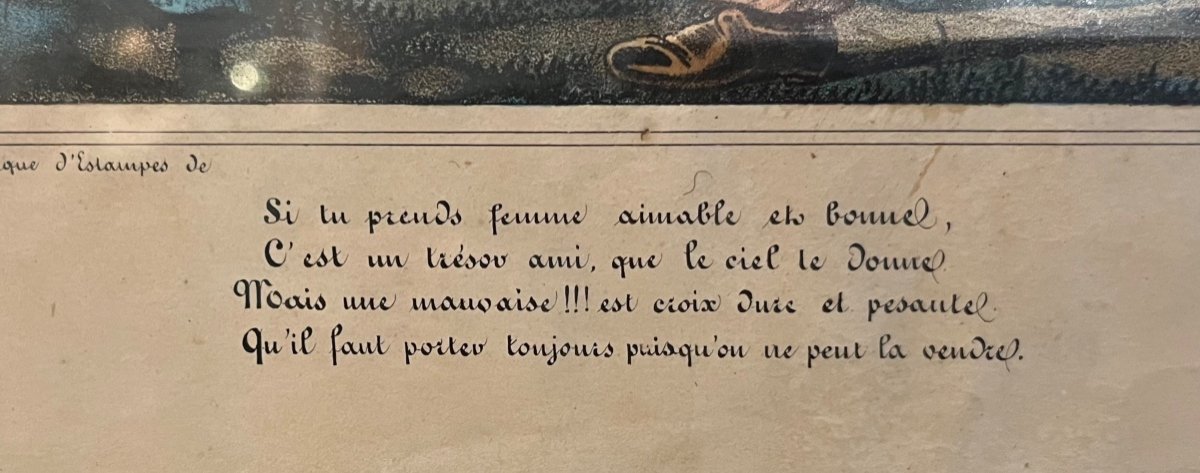 que d'Estampes de
Si tu prends femme aimable et bonne,
C'est un trésor ami, que le ciel te donne
Mais une mauvaise!!! est croix dure et pesante
Qu'il faut porter toujours puisqu'on ne peut la vendre.